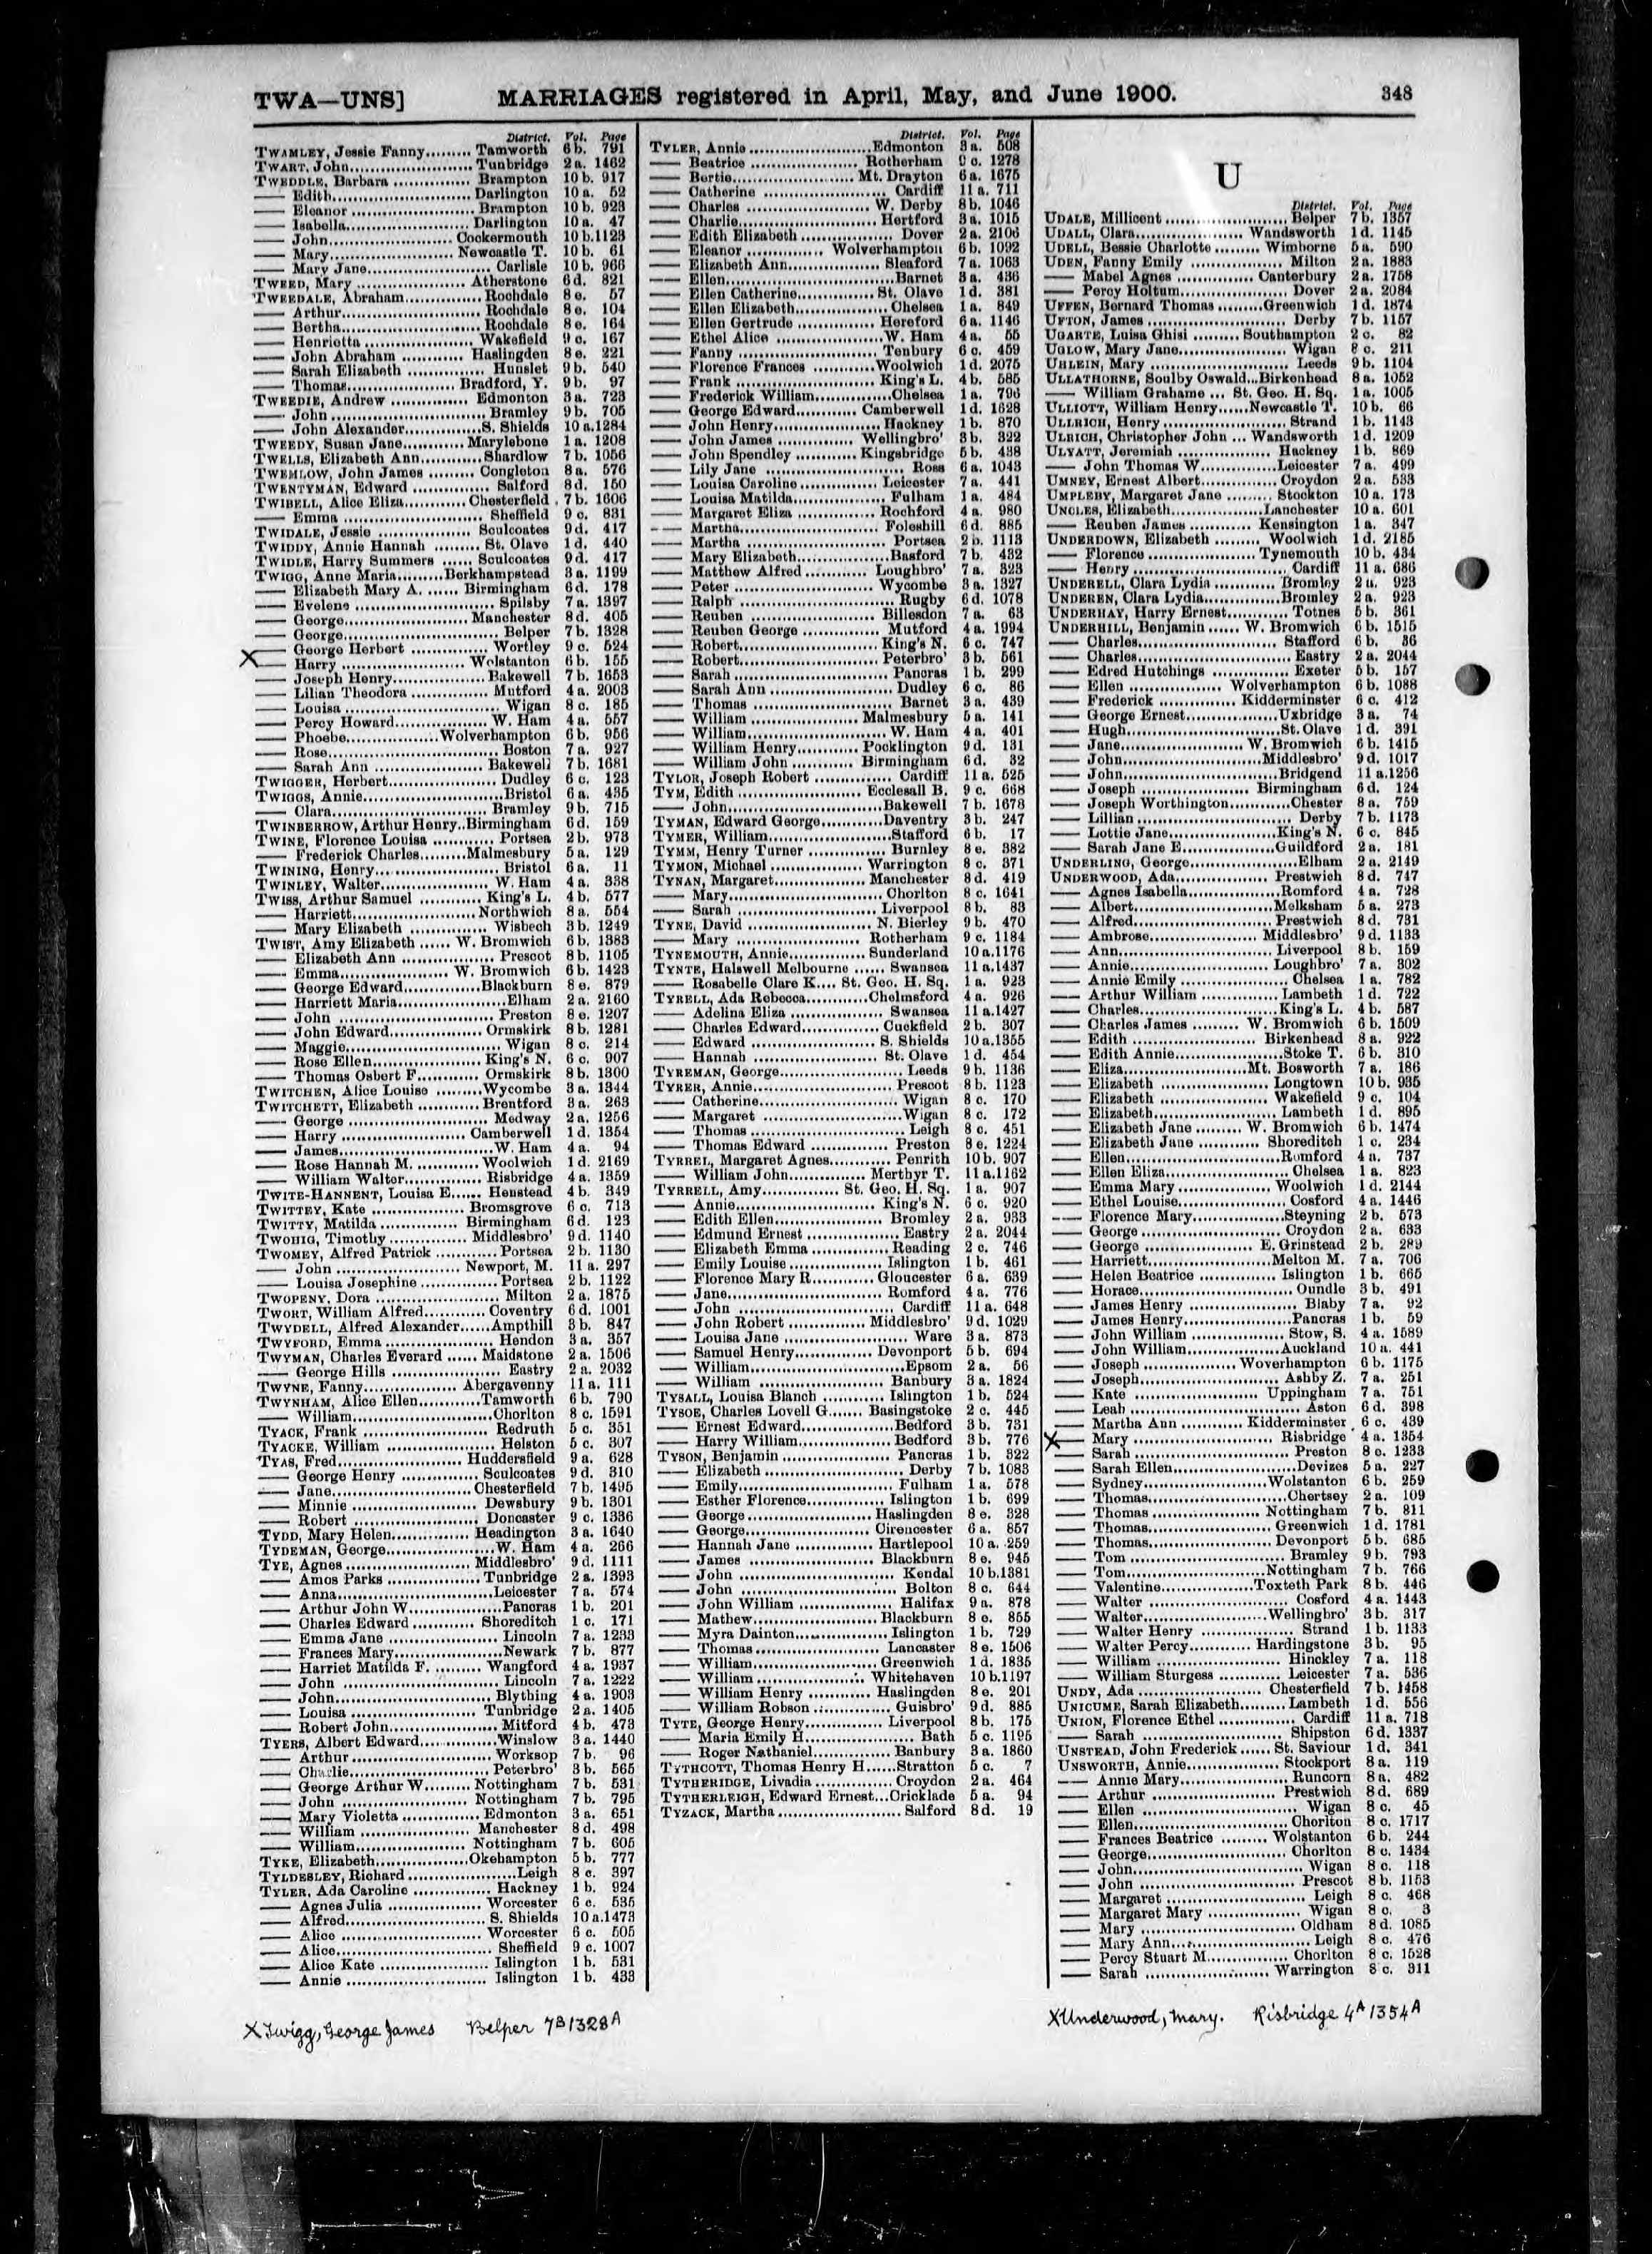 TWA—UNS] MARRIAGES registered in April, May, and June 1900. 348
District. Vol. Page
TWAMLEY, Jessie Fanny......... Tamworth 6 b. 791
TWART, John........................ Tunbridge 2 a. 1462
TWEDDLE, Barbara ............... Brampton 10 b. 917
—— Edith........................... Darlington 10 a. 52
—— Eleanor ........................ Brampton 10 b. 923
—— Isabella........................ Darlington 10 a. 47
—— John........................ Cockermouth 10 b.1123
—— Mary........................ Newcastle T. 10 b. 61
—— Mary Jane........................ Carlisle 10 b. 966
TWEED, Mary ..................... Atherstone 6 d. 821
TWEEDALE, Abraham............... Rochdale 8 e. 57
—— Arthur........................... Rochdale 8 e. 104
—— Bertha........................... Rochdale 8 e. 164
—— Henrietta ..................... Wakefield 9 c. 167
—— John Abraham ............ Haslingden 8 e. 221
—— Sarah Elizabeth ............... Hunslet 9 b. 540
—— Thomas..................... Bradford, Y. 9 b. 97
TWEEDIE, Andrew ............... Edmonton 3 a. 723
—— John .............................. Bramley 9 b. 705
—— John Alexander...............S. Shields 10 a.1284
TWEEDY, Susan Jane............ Marylebone 1 a. 1208
TWELLS, Elizabeth Ann............Shardlow 7 b. 1056
TWEMLOW, John James ......... Congleton 8 a. 576
TWENTYMAN, Edward ............... Salford 8 d. 150
TWIBELL, Alice Eliza............ Chesterfield 7 b. 1606
—— Emma ........................... Sheffield 9 c. 831
TWIDALE, Jessie .................. Sculcoates 9 d. 417
TWIDDY, Annie Hannah ......... St. Olave 1 d. 440
TWIDLE, Harry Summers ...... Sculcoates 9 d. 417
TWIGG, Anne Maria.........Berkhampstead 3 a. 1199
—— Elizabeth Mary A. ...... Birmingham 6 d. 178
—— Evelene ........................... Spilsby 7 a. 1397
—— George........................ Manchester 8 d. 405
—— George.............................. Belper 7 b. 1328
X —— George Herbert ............... Wortley 9 c. 524
—— Harry ........................ Wolstanton 6 b. 155
—— Joseph Henry.................. Bakewell 7 b. 1653
—— Lilian Theodora ............... Mutford 4 a. 2003
—— Louisa .............................. Wigan 8 c. 185
—— Percy Howard.................. W. Ham 4 a. 557
—— Phoebe..................Wolverhampton 6 b. 956
—— Rose................................. Boston 7 a. 927
—— Sarah Ann ..................... Bakewell 7 b. 1681
TWIGGER, Herbert..................... Dudley 6 c. 123
TWIGGS, Annie...........................Bristol 6 a. 435
—— Clara.............................. Bramley 9 b. 715
TWINBERROW, Arthur Henry..Birmingham 6 d. 159
TWINE, Florence Louisa ............ Portsea 2 b. 973
—— Frederick Charles.........Malmesbury 5 a. 129
TWINING, Henry........................ Bristol 6 a. 11
TWINLEY, Walter..................... W. Ham 4 a. 338
TWISS, Arthur Samuel ............ King's L. 4 b. 577
—— Harriett........................ Northwich 8 a. 554
—— Mary Elizabeth ............... Wisbech 3 b. 1249
TWIST, Amy Elizabeth ...... W. Bromwich 6 b. 1383
—— Elizabeth Ann .................. Prescot 8 b. 1105
—— Emma..................... W. Bromwich 6 b. 1423
—— George Edward...............Blackburn 8 e. 879
—— Harriett Maria.....................Elham 2 a. 2160
—— John .............................. Preston 8 e. 1207
—— John Edward.................. Ormskirk 8 b. 1281
—— Maggie.............................. Wigan 8 c. 214
—— Rose Ellen..................... King's N. 6 c. 907
—— Thomas Osbert F............ Ormskirk 8 b. 1300
TWITCHEN, Alice Louise .........Wycombe 3 a. 1344
TWITCHETT, Elizabeth ............ Brentford 3 a. 263
—— George ........................... Medway 2 a. 1256
—— Harry ........................ Camberwell 1 d. 1354
—— James..............................W. Ham 4 a. 94
—— Rose Hannah M. ............ Woolwich 1 d. 2169
—— William Walter............... Risbridge 4 a. 1359
TWITE-HANNENT, Louisa E...... Henstead 4 b. 349
TWITTEY, Kate .................. Bromsgrove 6 c. 713
TWITTY, Matilda ............... Birmingham 6 d. 123
TWOHIG, Timothy ............... Middlesbro' 9 d. 1140
TWOMEY, Alfred Patrick ............ Portsea 2 b. 1130
—— John ........................ Newport, M. 11 a. 297
—— Louisa Josephine ...............Portsea 2 b. 1122
TWOPENY, Dora ........................ Milton 2 a. 1875
TWORT, William Alfred............ Coventry 6 d. 1001
TWYDELL, Alfred Alexander......Ampthill 3 b. 847
TWYFORD, Emma ..................... Hendon 3 a. 357
TWYMAN, Charles Everard ...... Maidstone 2 a. 1506
—— George Hills ..................... Eastry 2 a. 2032
TWYNE, Fanny.................. Abergavenny 11 a. 111
TWYNHAM, Alice Ellen............Tamworth 6 b. 790
—— William...........................Chorlton 8 c. 1591
TYACK, Frank ........................ Redruth 5 c. 351
TYACKE, William ..................... Helston 5 c. 307
TYAS, Fred........................ Huddersfield 9 a. 628
—— George Henry ............... Sculcoates 9 d. 310
—— Jane........................Chesterfield 7 b. 1495
—— Minnie ........................ Dewsbury 9 b. 1301
—— Robert ........................ Doncaster 9 c. 1336
TYDD, Mary Helen............... Headington 3 a. 1640
TYDEMAN, George.....................W. Ham 4 a. 266
TYE, Agnes ........................ Middlesbro' 9 d. 1111
—— Amos Parks .................. Tunbridge 2 a. 1393
—— Anna..............................Leicester 7 a. 574
—— Arthur John W..................Pancras 1 b. 201
—— Charles Edward ............ Shoreditch 1 c. 171
—— Emma Jane ..................... Lincoln 7 a. 1233
—— Frances Mary.....................Newark 7 b. 877
—— Harriet Matilda F. ......... Wangford 4 a. 1937
—— John .............................. Lincoln 7 a. 1222
—— John.............................. Blything 4 a. 1903
—— Louisa ........................ Tunbridge 2 a. 1405
—— Robert John..................... Mitford 4 b. 473
TYERS, Albert Edward...............Winslow 3 a. 1440
—— Arthur ........................... Worksop 7 b. 96
—— Charlie........................... Peterbro' 3 b. 565
—— George Arthur W......... Nottingham 7 b. 531
—— John ........................ Nottingham 7 b. 795
—— Mary Violetta ............... Edmonton 3 a. 651
—— William ..................... Manchester 8 d. 498
—— William..................... Nottingham 7 b. 605
TYKE, Elizabeth..................Okehampton 5 b. 777
TYLDESLEY, Richard .....................Leigh 8 c. 397
TYLER, Ada Caroline ............... Hackney 1 b. 924
—— Agnes Julia .................. Worcester 6 c. 535
—— Alfred........................... S. Shields 10 a.1473
—— Alice ........................... Worcester 6 c. 505
—— Alice.............................. Sheffield 9 c. 1007
—— Alice Kate ..................... Islington 1 b. 531
—— Annie ........................... Islington 1 b. 433
District. Vol. Page
TYLER, Annie ........................Edmonton 3 a. 508
—— Beatrice ..................... Rotherham 9 c. 1278
—— Bertie........................ Mt. Drayton 6 a. 1675
—— Catherine ........................ Cardiff 11 a. 711
—— Charles ........................ W. Derby 8 b. 1046
—— Charlie........................... Hertford 3 a. 1015
—— Edith Elizabeth .................. Dover 2 a. 2106
—— Eleanor ............... Wolverhampton 6 b. 1092
—— Elizabeth Ann.................. Sleaford 7 a. 1063
—— Ellen.................................Barnet 3 a. 436
—— Ellen Catherine...............St. Olave 1 d. 381
—— Ellen Elizabeth.................. Chelsea 1 a. 849
—— Ellen Gertrude ............... Hereford 6 a. 1146
—— Ethel Alice .....................W. Ham 4 a. 55
—— Fanny ........................... Tenbury 6 c. 459
—— Florence Frances ............Woolwich 1 d. 2075
—— Frank ........................... King's L. 4 b. 585
—— Frederick William...............Chelsea 1 a. 796
—— George Edward............ Camberwell 1 d. 1628
—— John Henry..................... Hackney 1 b. 870
—— John James ............... Wellingbro' 3 b. 322
—— John Spendley ............ Kingsbridge 5 b. 438
—— Lily Jane ........................... Ross 6 a. 1043
—— Louisa Caroline ............... Leicester 7 a. 441
—— Louisa Matilda.................. Fulham 1 a. 484
—— Margaret Eliza ............... Rochford 4 a. 980
—— Martha........................... Foleshill 6 d. 885
—— Martha ........................... Portsea 2 b. 1113
—— Mary Elizabeth................. Basford 7 b. 432
—— Matthew Alfred ............ Loughbro' 7 a. 323
—— Peter ........................... Wycombe 3 a. 1327
—— Ralph .............................. Rugby 6 d. 1078
—— Reuben ........................ Billesdon 7 a. 63
—— Reuben George ............... Mutford 4 a. 1994
—— Robert........................... King's N. 6 c. 747
—— Robert........................... Peterbro' 3 b. 561
—— Sarah ........................... Pancras 1 b. 299
—— Sarah Ann ........................ Dudley 6 c. 86
—— Thomas ........................... Barnet 3 a. 439
—— William ..................... Malmesbury 5 a. 141
—— William........................... W. Ham 4 a. 401
—— William Henry............ Pocklington 9 d. 131
—— William John ............ Birmingham 6 d. 32
TYLOR, Joseph Robert ............... Cardiff 11 a. 525
TYM, Edith ........................ Ecclesall B. 9 c. 668
—— John..............................Bakewell 7 b. 1678
TYMAN, Edward George............Daventry 3 b. 247
TYMER, William........................Stafford 6 b. 17
TYMM, Henry Turner ............... Burnley 8 e. 382
TYMON, Michael .................. Warrington 8 c. 371
TYNAN, Margaret.................. Manchester 8 d. 419
—— Mary.............................. Chorlton 8 c. 1641
—— Sarah ........................... Liverpool 8 b. 83
TYNE, David ........................ N. Bierley 9 b. 470
—— Mary ........................... Rotherham 9 c. 1184
TYNEMOUTH, Annie............... Sunderland 10 a.1176
TYNTE, Halswell Melbourne ...... Swansea 11 a.1437
—— Rosabelle Clare K.... St. Geo. H. Sq. 1 a. 923
TYRELL, Ada Rebecca............Chelmsford 4 a. 926
—— Adelina Eliza .................. Swansea 11 a.1427
—— Charles Edward............... Cuckfield 2 b. 307
—— Edward ........................ S. Shields 10 a.1355
—— Hannah ........................ St. Olave 1 d. 454
TYREMAN, George........................ Leeds 9 b. 1136
TYRER, Annie........................... Prescot 8 b. 1123
—— Catherine........................... Wigan 8 c. 170
—— Margaret ...........................Wigan 8 c. 172
—— Thomas .............................. Leigh 8 c. 451
—— Thomas Edward ............... Preston 8 e. 1224
TYRREL, Margaret Agnes............ Penrith 10 b. 907
—— William John............... Merthyr T. 11 a.1162
TYRRELL, Amy............... St. Geo. H. Sq. 1 a. 907
—— Annie........................... King's N. 6 c. 920
—— Edith Ellen..................... Bromley 2 a. 933
—— Edmund Ernest .................. Eastry 2 a. 2044
—— Elizabeth Emma ............... Reading 2 c. 746
—— Emily Louise .................. Islington 1 b. 461
—— Florence Mary R............ Gloucester 6 a. 639
—— Jane.............................. Romford 4 a. 776
—— John .............................. Cardiff 11 a. 648
—— John Robert ............... Middlesbro' 9 d. 1029
—— Louisa Jane ........................ Ware 3 a. 873
—— Samuel Henry............... Devonport 5 b. 694
—— William..............................Epsom 2 a. 56
—— William ........................ Banbury 3 a. 1824
TYSALL, Louisa Blanch ............ Islington 1 b. 524
TYSOE, Charles Lovell G....... Basingstoke 2 c. 445
—— Ernest Edward..................Bedford 3 b. 731
—— Harry William..................Bedford 3 b. 776
TYSON, Benjamin ..................... Pancras 1 b. 322
—— Elizabeth ........................... Derby 7 b. 1083
—— Emily.............................. Fulham 1 a. 578
—— Esther Florence............... Islington 1 b. 699
—— George ........................ Haslingden 8 e. 328
—— George........................ Cirencester 6 a. 857
—— Hannah Jane ............... Hartlepool 10 a. 259
—— James ........................ Blackburn 8 e. 945
—— John .............................. Kendal 10 b.1381
—— John .............................. Bolton 8 c. 644
—— John William .................. Halifax 9 a. 878
—— Mathew........................ Blackburn 8 e. 855
—— Myra Dainton.................. Islington 1 b. 729
—— Thomas ........................ Lancaster 8 e. 1506
—— William........................ Greenwich 1 d. 1835
—— William ..................... Whitehaven 10 b.1197
—— William Henry ............ Haslingden 8 e. 201
—— William Robson ............... Guisbro' 9 d. 885
TYTE, George Henry............... Liverpool 8 b. 175
—— Maria Emily H..................... Bath 5 c. 1195
—— Roger Nathaniel............... Banbury 3 a. 1860
TYTHCOTT, Thomas Henry H......Stratton 5 c. 7
TYTHERIDGE, Livadia ............... Croydon 2 a. 464
TYTHERLEIGH, Edward Ernest...Cricklade 5 a. 94
TYZACK, Martha ........................ Salford 8 d. 19
U
District. Vol. Page
UDALE, Millicent ........................ Belper 7 b. 1357
UDALL, Clara..................... Wandsworth 1 d. 1145
UDELL, Bessie Charlotte ......... Wimborne 5 a. 590
UDEN, Fanny Emily .................. Milton 2 a. 1883
—— Mabel Agnes ............... Canterbury 2 a. 1758
—— Percy Holtum..................... Dover 2 a. 2084
UFFEN, Bernard Thomas .........Greenwich 1 d. 1874
UFTON, James ........................... Derby 7 b. 1157
UGARTE, Luisa Ghisi ......... Southampton 2 c. 82
UGLOW, Mary Jane..................... Wigan 8 c. 211
UHLEIN, Mary ........................... Leeds 9 b. 1104
ULLATHORNE, Soulby Oswald...Birkenhead 8 a. 1052
—— William Grahame ... St. Geo. H. Sq. 1 a. 1005
ULLIOTT, William Henry......Newcastle T. 10 b. 66
ULLRICH, Henry ........................ Strand 1 b. 1143
ULRICH, Christopher John ... Wandsworth 1 d. 1209
ULYATT, Jeremiah .................. Hackney 1 b. 869
—— John Thomas W...............Leicester 7 a. 499
UMNEY, Ernest Albert............... Croydon 2 a. 533
UMPLEBY, Margaret Jane ......... Stockton 10 a. 173
UNCLES, Elizabeth..................Lanchester 10 a. 601
—— Reuben James ............ Kensington 1 a. 347
UNDERDOWN, Elizabeth ......... Woolwich 1 d. 2185
—— Florence ..................... Tynemouth 10 b. 434
—— Henry .............................. Cardiff 11 a. 686
UNDERELL, Clara Lydia ............ Bromley 2 a. 923
UNDEREN, Clara Lydia...............Bromley 2 a. 923
UNDERHAY, Harry Ernest............ Totnes 5 b. 361
UNDERHILL, Benjamin ...... W. Bromwich 6 b. 1515
—— Charles........................... Stafford 6 b. 36
—— Charles.............................. Eastry 2 a. 2044
—— Edred Hutchings ............... Exeter 5 b. 157
—— Ellen .................. Wolverhampton 6 b. 1088
—— Frederick ............... Kidderminster 6 c. 412
—— George Ernest..................Uxbridge 3 a. 74
—— Hugh..............................St. Olave 1 d. 391
—— Jane........................ W. Bromwich 6 b. 1415
—— John...........................Middlesbro' 9 d. 1017
—— John..............................Bridgend 11 a.1256
—— Joseph ..................... Birmingham 6 d. 124
—— Joseph Worthington............Chester 8 a. 759
—— Lillian .............................. Derby 7 b. 1173
—— Lottie Jane.....................King's N. 6 c. 845
—— Sarah Jane E..................Guildford 2 a. 181
UNDERLING, George.....................Elham 2 a. 2149
UNDERWOOD, Ada.................. Prestwich 8 d. 747
—— Agnes Isabella..................Romford 4 a. 728
—— Albert...........................Melksham 5 a. 273
—— Alfred........................... Prestwich 8 d. 731
—— Ambrose..................... Middlesbro' 9 d. 1133
—— Ann.............................. Liverpool 8 b. 159
—— Annie........................... Loughbro' 7 a. 302
—— Annie Emily ..................... Chelsea 1 a. 782
—— Arthur William ............... Lambeth 1 d. 722
—— Charles...........................King's L. 4 b. 587
—— Charles James ......... W. Bromwich 6 b. 1509
—— Edith ........................ Birkenhead 8 a. 922
—— Edith Annie.....................Stoke T. 6 b. 310
—— Eliza........................Mt. Bosworth 7 a. 186
—— Elizabeth ..................... Longtown 10 b. 935
—— Elizabeth ..................... Wakefield 9 c. 104
—— Elizabeth........................ Lambeth 1 d. 895
—— Elizabeth Jane ......... W. Bromwich 6 b. 1474
—— Elizabeth Jane ............ Shoreditch 1 c. 234
—— Ellen.............................. Romford 4 a. 737
—— Ellen Eliza........................ Chelsea 1 a. 823
—— Emma Mary .................. Woolwich 1 d. 2144
—— Ethel Louise..................... Cosford 4 a. 1446
—— Florence Mary..................Steyning 2 b. 573
—— George ........................... Croydon 2 a. 633
—— George ..................... E. Grinstead 2 b. 289
—— Harriett........................Melton M. 7 a. 706
—— Helen Beatrice ............... Islington 1 b. 665
—— Horace........................... Oundle 3 b. 491
—— James Henry ..................... Blaby 7 a. 92
—— James Henry.....................Pancras 1 b. 59
—— John William .................. Stow, S. 4 a. 1589
—— John William..................Auckland 10 a. 441
—— Joseph .................. Woverhampton 6 b. 1175
—— Joseph........................... Ashby Z. 7 a. 251
—— Kate ........................ Uppingham 7 a. 751
—— Leah .............................. Aston 6 d. 398
—— Martha Ann ............ Kidderminster 6 c. 439
X —— Mary ........................... Risbridge 4 a. 1354
—— Sarah .............................. Preston 8 e. 1233
—— Sarah Ellen........................Devizes 5 a. 227
—— Sydney........................Wolstanton 6 b. 259
—— Thomas...........................Chertsey 2 a. 109
—— Thomas ..................... Nottingham 7 b. 811
—— Thomas........................ Greenwich 1 d. 1781
—— Thomas........................ Devonport 5 b. 685
—— Tom .............................. Bramley 9 b. 793
—— Tom...........................Nottingham 7 b. 766
—— Valentine..................Toxteth Park 8 b. 446
—— Walter ........................... Cosford 4 a. 1443
—— Walter........................Wellingbro' 3 b. 317
—— Walter Henry .................. Strand 1 b. 1133
—— Walter Percy............ Hardingstone 3 b. 95
—— William ........................ Hinckley 7 a. 118
—— William Sturgess ............ Leicester 7 a. 536
UNDY, Ada ........................ Chesterfield 7 b. 1458
UNICUME, Sarah Elizabeth......... Lambeth 1 d. 556
UNION, Florence Ethel ............... Cardiff 11 a. 718
—— Sarah .............................. Shipston 6 d. 1337
UNSTEAD, John Frederick ...... St. Saviour 1 d. 341
UNSWORTH, Annie.................. Stockport 8 a. 119
—— Annie Mary..................... Runcorn 8 a. 482
—— Arthur ........................ Prestwich 8 d. 689
—— Ellen .............................. Wigan 8 c. 45
—— Ellen.............................. Chorlton 8 c. 1717
—— Frances Beatrice ......... Wolstanton 6 b. 244
—— George........................... Chorlton 8 c. 1434
—— John................................. Wigan 8 c. 118
—— John .............................. Prescot 8 b. 1153
—— Margaret ........................... Leigh 8 c. 468
—— Margaret Mary .................. Wigan 8 c. 3
—— Mary .............................. Oldham 8 d. 1085
—— Mary Ann........................... Leigh 8 c. 476
—— Percy Stuart M............... Chorlton 8 c. 1528
—— Sarah ........................ Warrington 8 c. 311
X Twigg, George James Belper 7B 1328A
X Underwood, Mary. Risbridge 4A 1354A